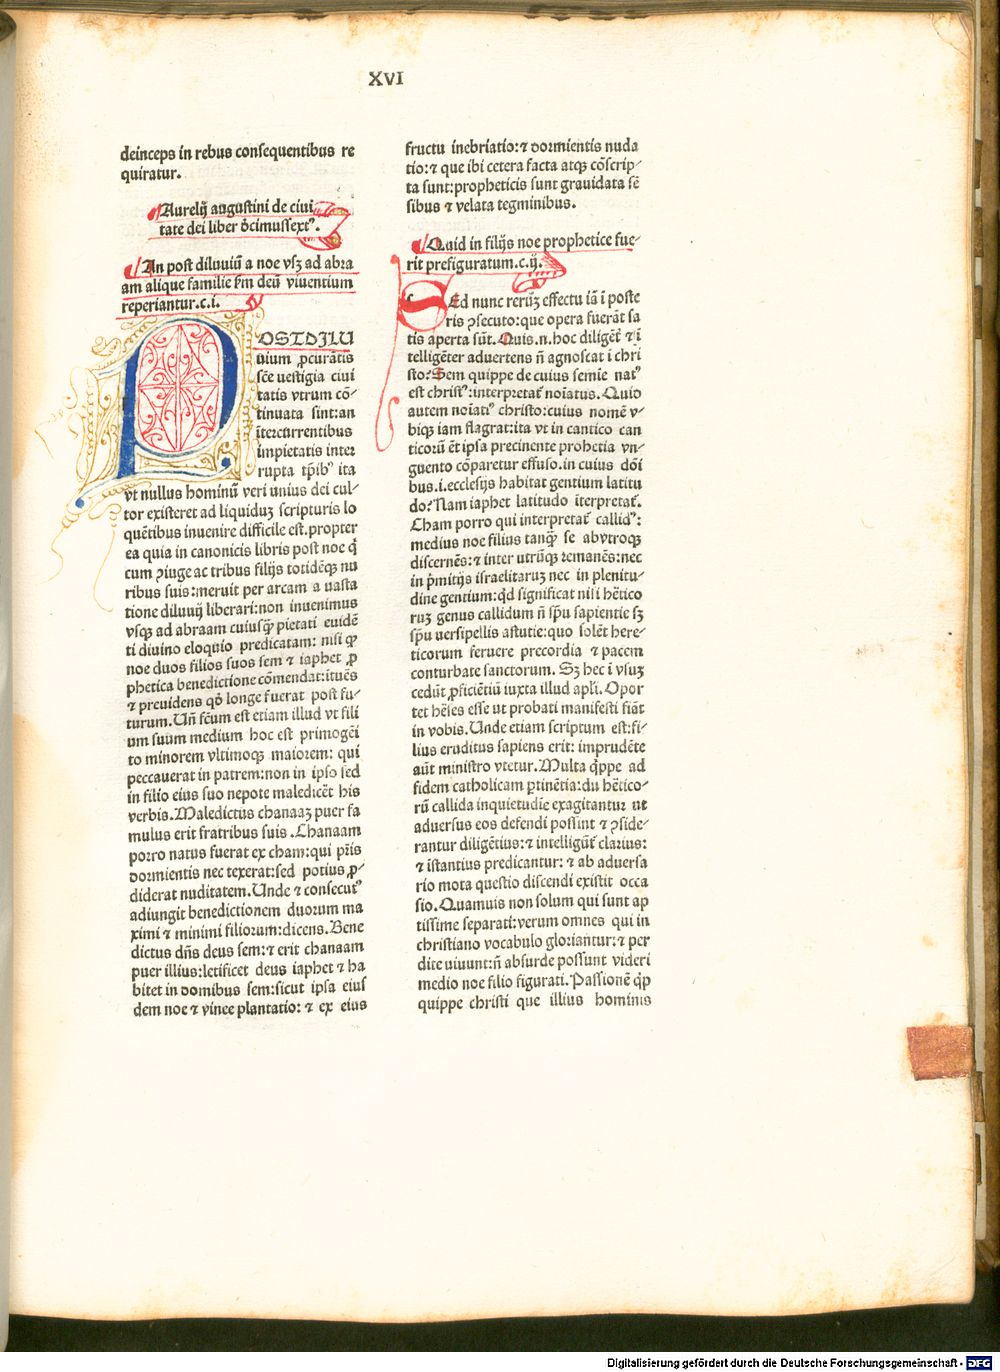 XVI
deinceps in rebus consequentibus re
quiratur.
Aurelij augustini de ciui
tate dei liber dcimussextꝰ.
An post diluuiū a noe vsqꝫ ad abra
am alique familie sm deū viuentium
reperiantur.c.i.
POSTDILU
uium ꝓcurātis
scē uestigia ciui
tatis vtrum cō-
tinuata sint:an
ītercurrentibus
impietatis inter
rupta tp̄ibꝰ ita
vt nullus hominū veri unius dei cul-
tor existeret ad liquiduꝫ scripturis lo
quētibus inuenire difficile est.propter
ea quia in canonicis libris post noe q̄
cum ꝯiuge ac tribus filijs totidēqꝫ nu
ribus suis:meruit per arcam a uasta
tione diluuij liberari:non inuenimus
vsqꝫ ad abraam cuiusqꝫ pietati euidē
ti diuino eloquio predicatam: nisi ꝙ
noe duos filios suos sem ⁊ iaphet ꝓ
phetica benedictione cōmendat:ituēs
⁊ preuidens qd̓ longe fuerat post fu-
turum.Un̄ fcūm est etiam illud vt fili
um suum medium hoc est primogēi
to minorem vltimoqꝫ maiorem: qui
peccauerat in patrem:non in ipso sed
in filio eius suo nepote maledicēt his
verbis.Maledictus chanaaꝫ puer fa
mulus erit fratribus suis .Chanaam
porro natus fuerat ex cham:qui pr̄is
dormientis nec texerat:sed potius ꝓ-
diderat nuditatem.Unde ⁊ consecutꝰ
adiungit benedictionem duorum ma
ximi ⁊ minimi filiorum:dicens.Bene
dictus dn̄s deus sem:⁊ erit chanaam
puer illius:letificet deus iaphet ⁊ ha
bitet in domibus sem:sicut ipsa eius
dem noe ⁊ vinee plantatio: ⁊ ex eius
fructu inebriatio:⁊ dormientis nuda
tio:⁊ que ibi cetera facta atqꝫ cōscrip-
ta sunt:propheticis sunt grauidata sē
sibus ⁊ velata tegminibus.
Quid in filijs noe prophetice fue-
rit prefiguratum.c.ij.
SEd nunc rerūꝫ effectu iā i poste
ris ꝯsecuto:que opera fuerāt sa
tis aperta sūt.Quis.n.hoc diligēt̓ ⁊ī
telligēter aduertens n̄ agnoscat i chri
sto?Sem quippe de cuius semie natꝰ
est christꝰ:interpretat̓ noīatus.Quid
autem noīatiꝰ christo:cuius nomē v-
biqꝫ iam flagrat:ita vt in cantico can
ticorū ēt ipsa precinente prohetia vn-
guento cōparetur effuso.in cuius dōi
bus.i.ecclesijs habitat gentium latitu
do?Nam iaphet latitudo īterpretat̓.
Cham porro qui interpretat̓ callidꝰ:
medius noe filius tanqꝫ se abvtroqꝫ
discernēs:⁊ inter utrūqꝫ remanēs:nec
in p̓mitijs israelitaruꝫ nec in plenitu-
dine gentium:qd̓ significat nisi hētico
ruꝫ genus callidum n̄ sp̄u sapientie sꝫ
sp̄u uersipellis astutie:quo solēt here-
ticorum feruere precordia ⁊ pacem
conturbate sanctorum. Sꝫ hec i vsuꝫ
cedūt ꝓficiētiū iuxta illud apl̄i. Opor
tet hēses esse ut probati manifesti fiāt
in vobis.Unde etiam scriptum est:fi-
lius eruditus sapiens erit: imprudēte
aūt ministro vtetur.Multa q̄ppe ad
fidem catholicam ꝑtinētia:dū hētico-
rū callida inquietudie exagitantur ut
aduersus eos defendi possint ⁊ ꝯside-
rantur diligētius:⁊ intelligūt̓ clarius:
⁊ istantius predicantur: ⁊ ab aduersa
rio mota questio discendi existit occa
sio.Quamuis non solum qui sunt ap
tissime separati:verum omnes qui in
christiano vocabulo gloriantur:⁊ per
dite uiuunt:n̄ absurde possunt videri
medio noe filio figurati.Passionē qꝓ
quippe christi que illius hominis
Digitalisierung gefördert durch die Deutsche Forschungsgemeinschaft - DFG